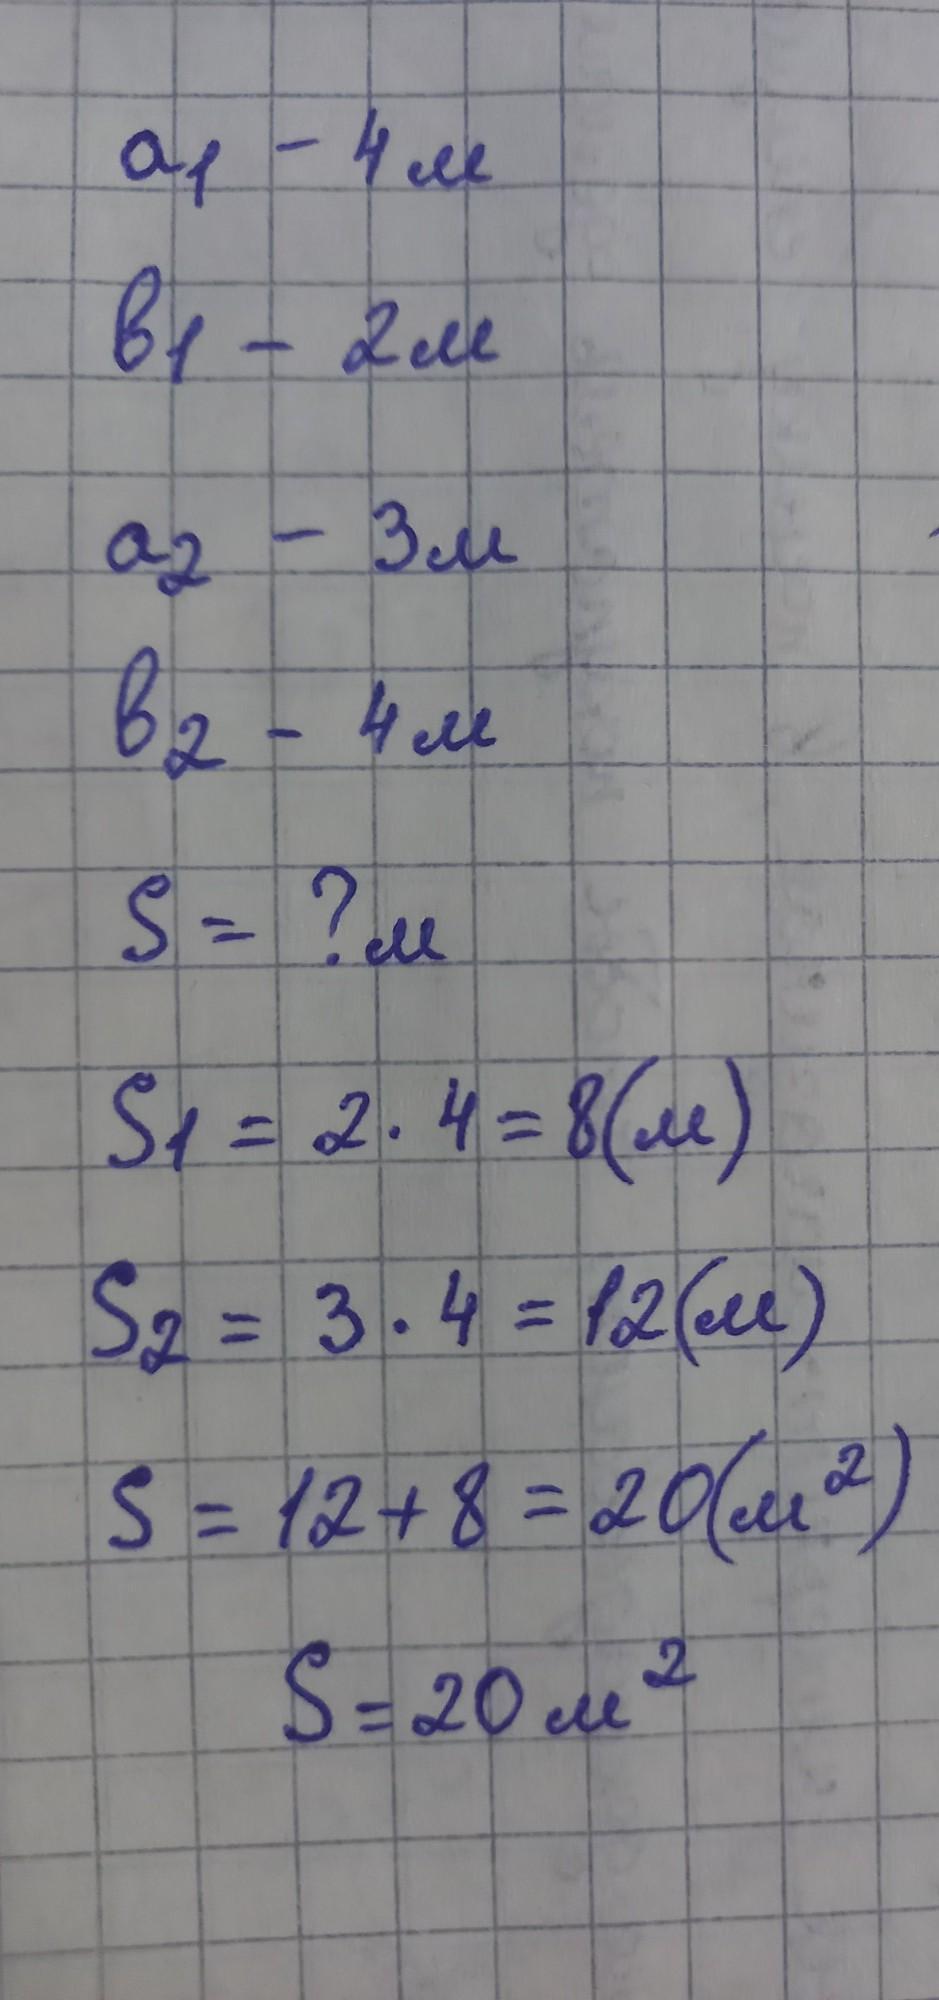 a₁ - 4м
в₁ - 2м
a₂ - 3м
в₂ - 4м
S = ?м
S₁ = 2 · 4 = 8(м)
S₂ = 3 · 4 = 12(м)
S = 12 + 8 = 20(м²)
S = 20 м²